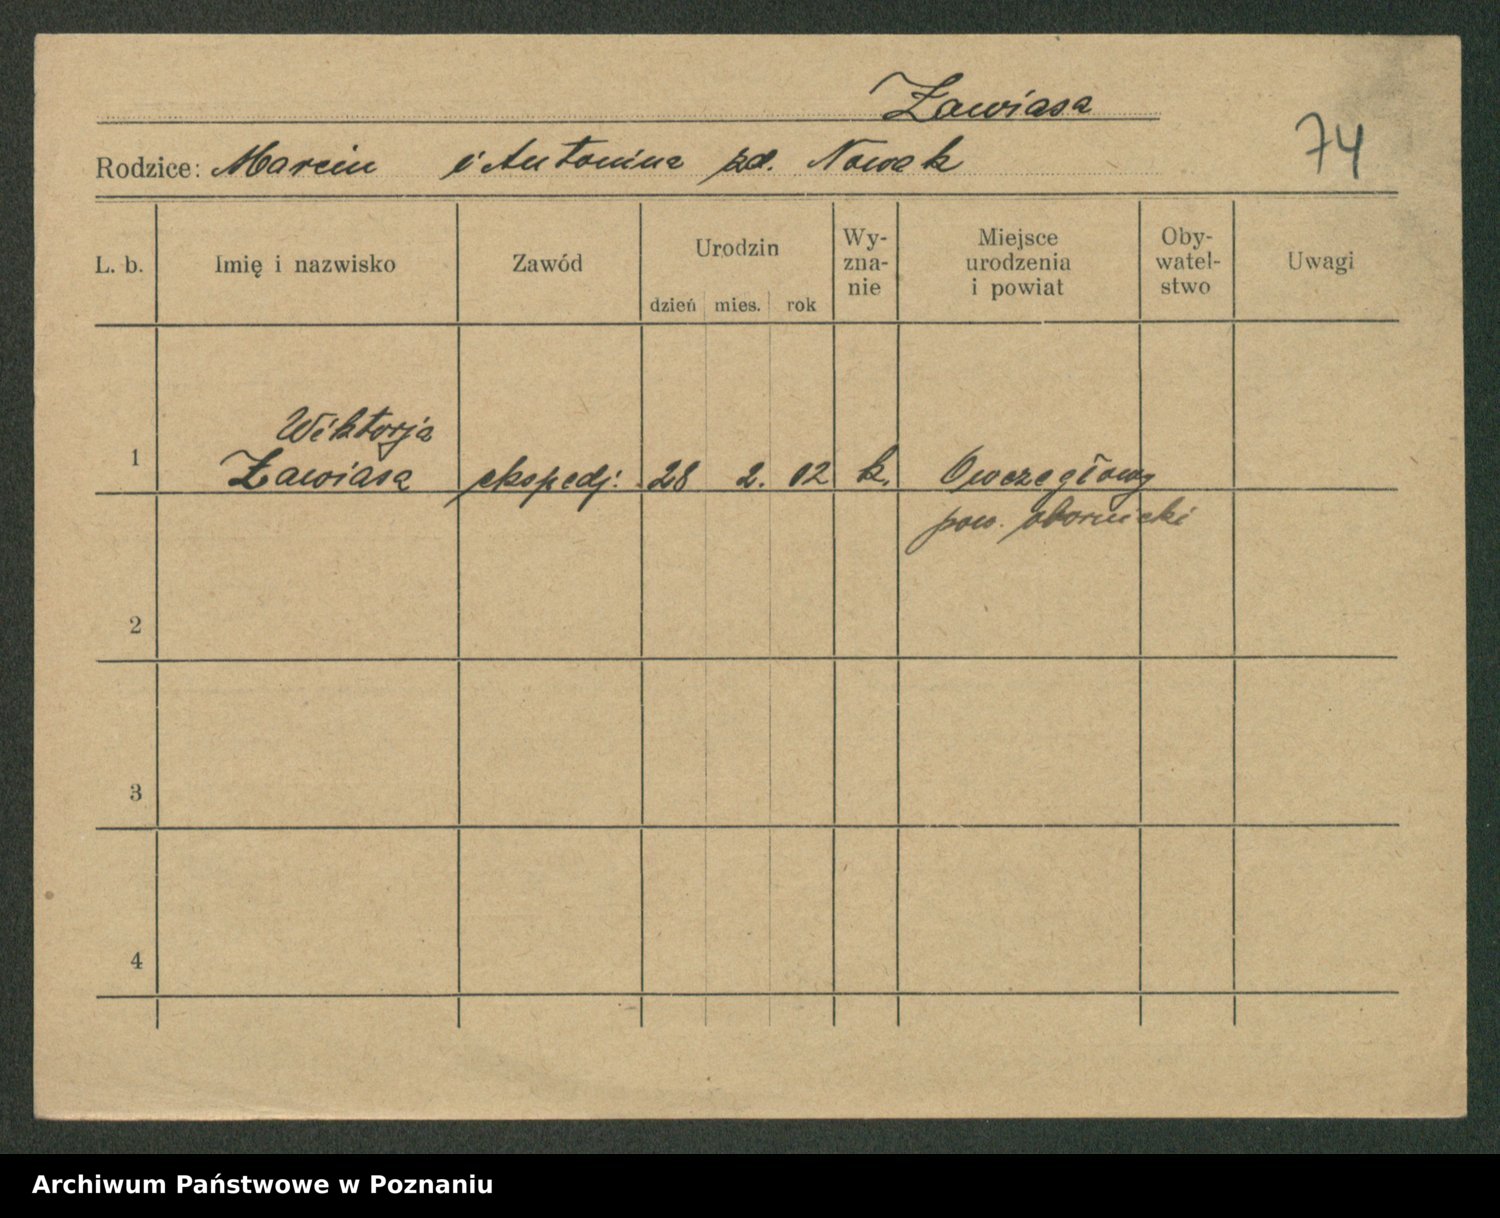 Zawiasa
74
Rodzice: Marcin i Antonina zd. Nowak
L. b. Imię i nazwisko Zawód Urodzin dzień mies. rok Wy-zna-nie Miejsce urodzenia i powiat Oby-watel-stwo Uwagi
Wiktorja
1 Zawiasa ekspedj. 28 2. 02 k. Owczegłowy
pow. obornicki
2
3
4
Archiwum Państwowe w Poznaniu